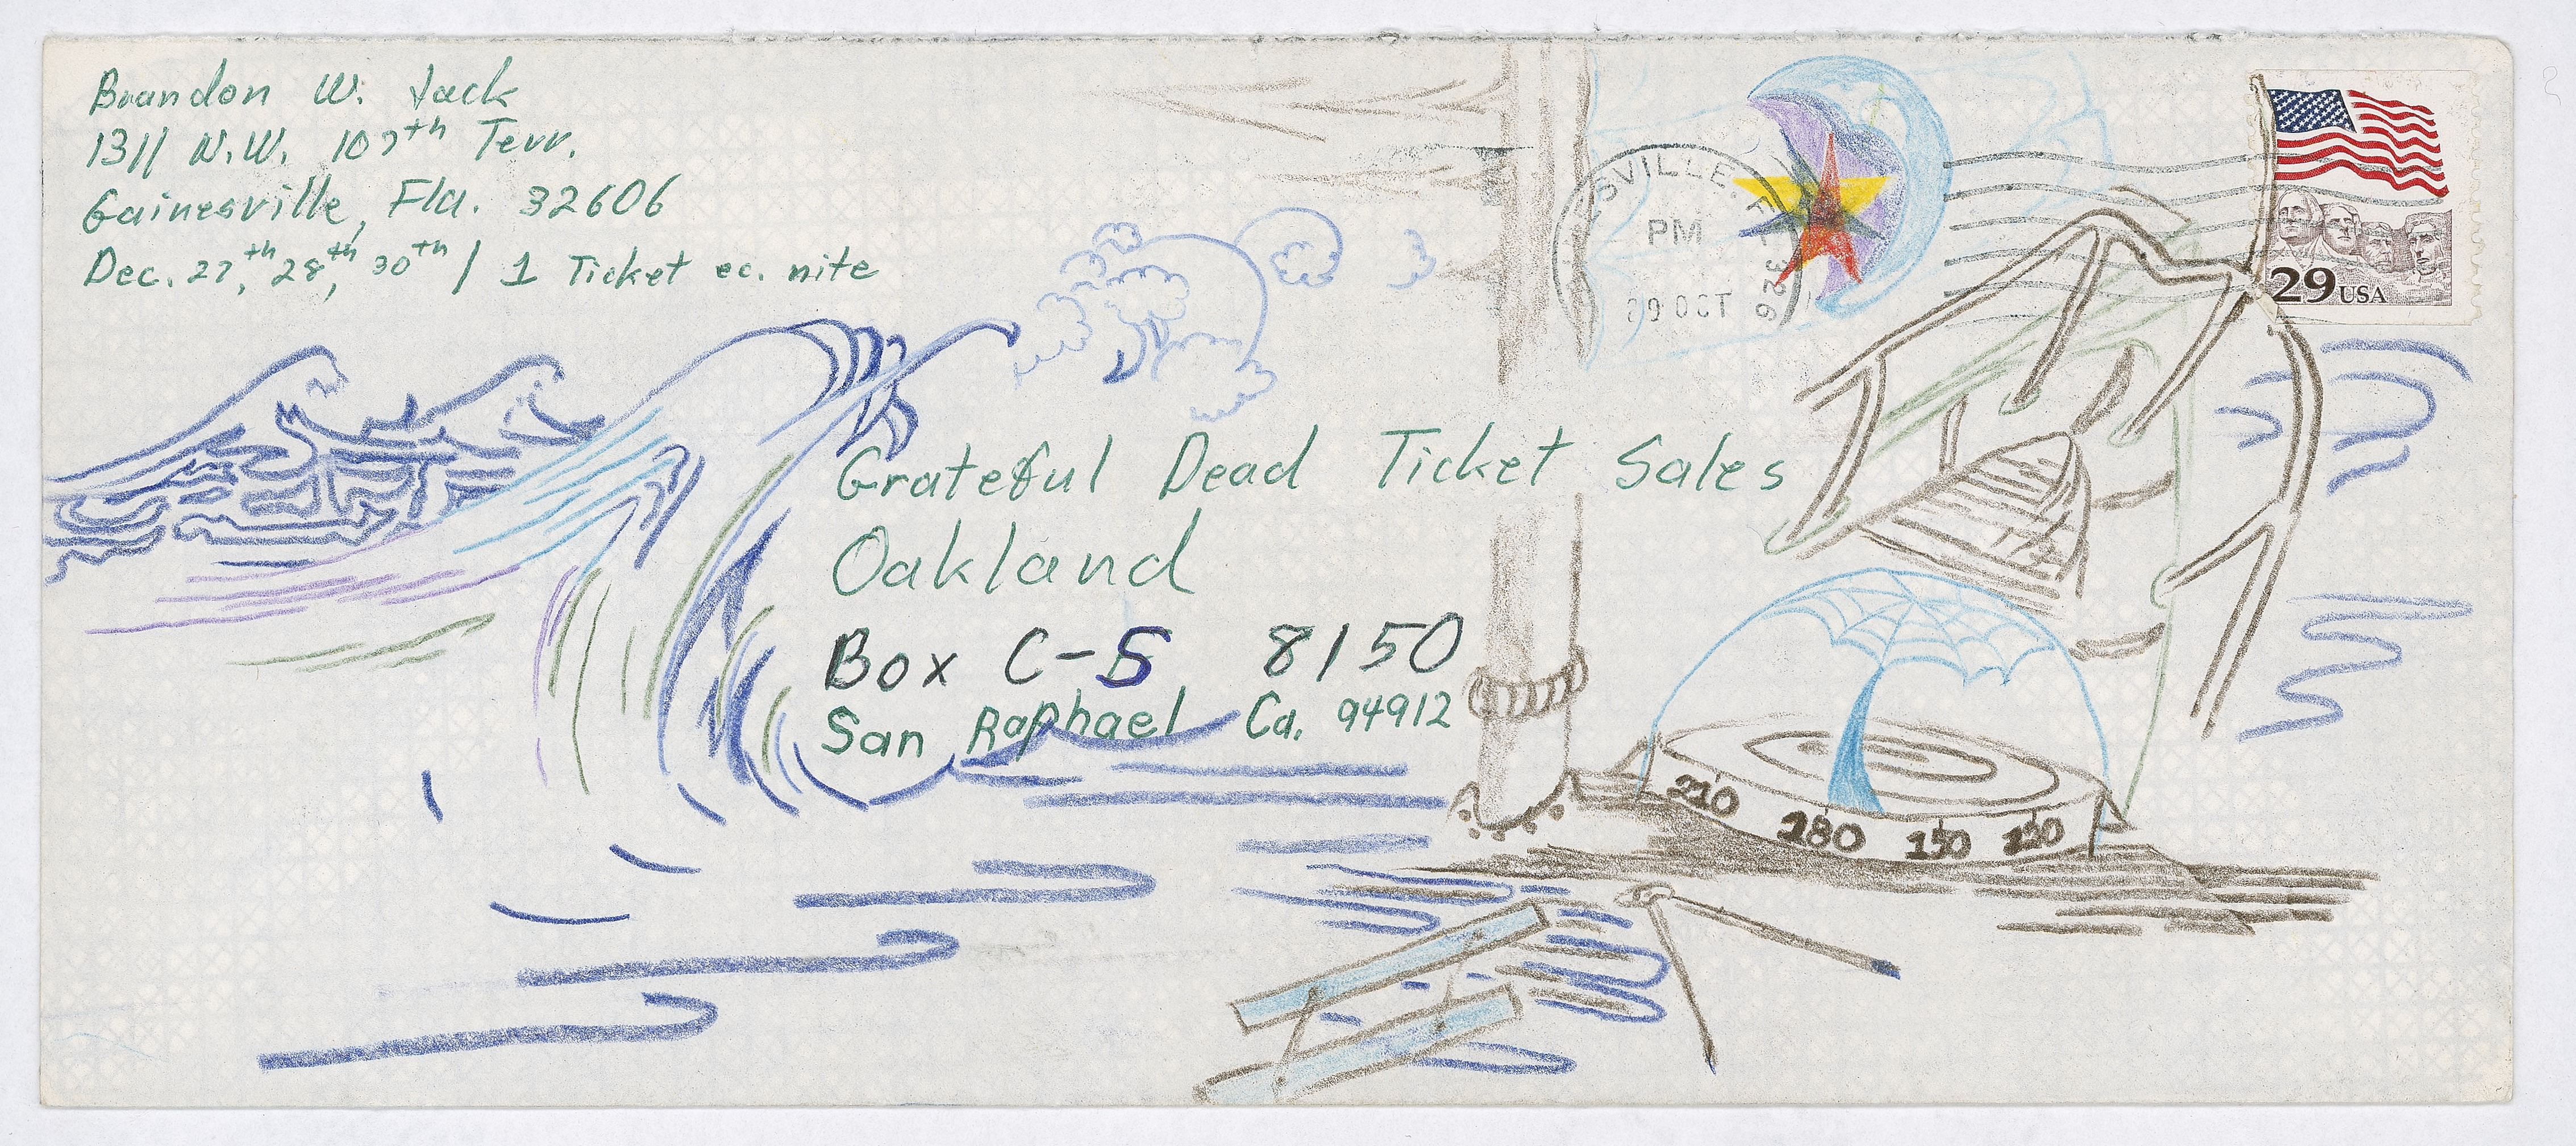 Brandon W. Jack
1311 N.W. 107th Terr.
Gainesville, Fla. 32606
Dec. 27th, 28th, 30th / 1 Ticket ec. nite
SVILLE, F
PM
OCT
326
29 USA
Grateful Dead Ticket Sales
Oakland
Box C-S 8150
San Raphael Ca. 94912
210 180 150 120